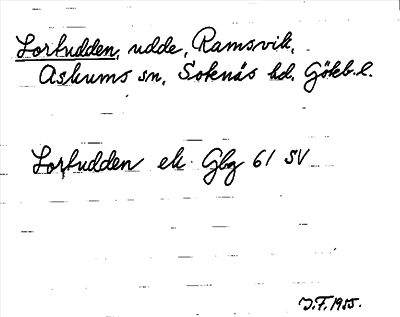 Lortudden, udde, Ramsvik,
Askums sn, Sotenäs hd, Göteb. l.
Lortudden ek Gbg 61 SV
J.F. 1955.